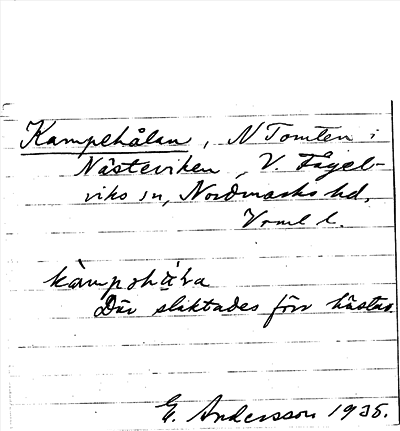 Kampehålan, N Tomten i
Nästeviken, V. Fågel-
viks sn, Nordmarks hd,
Vrml l.
kampohåra
Där slaktades förr hästar.
E. Andersson 1935.